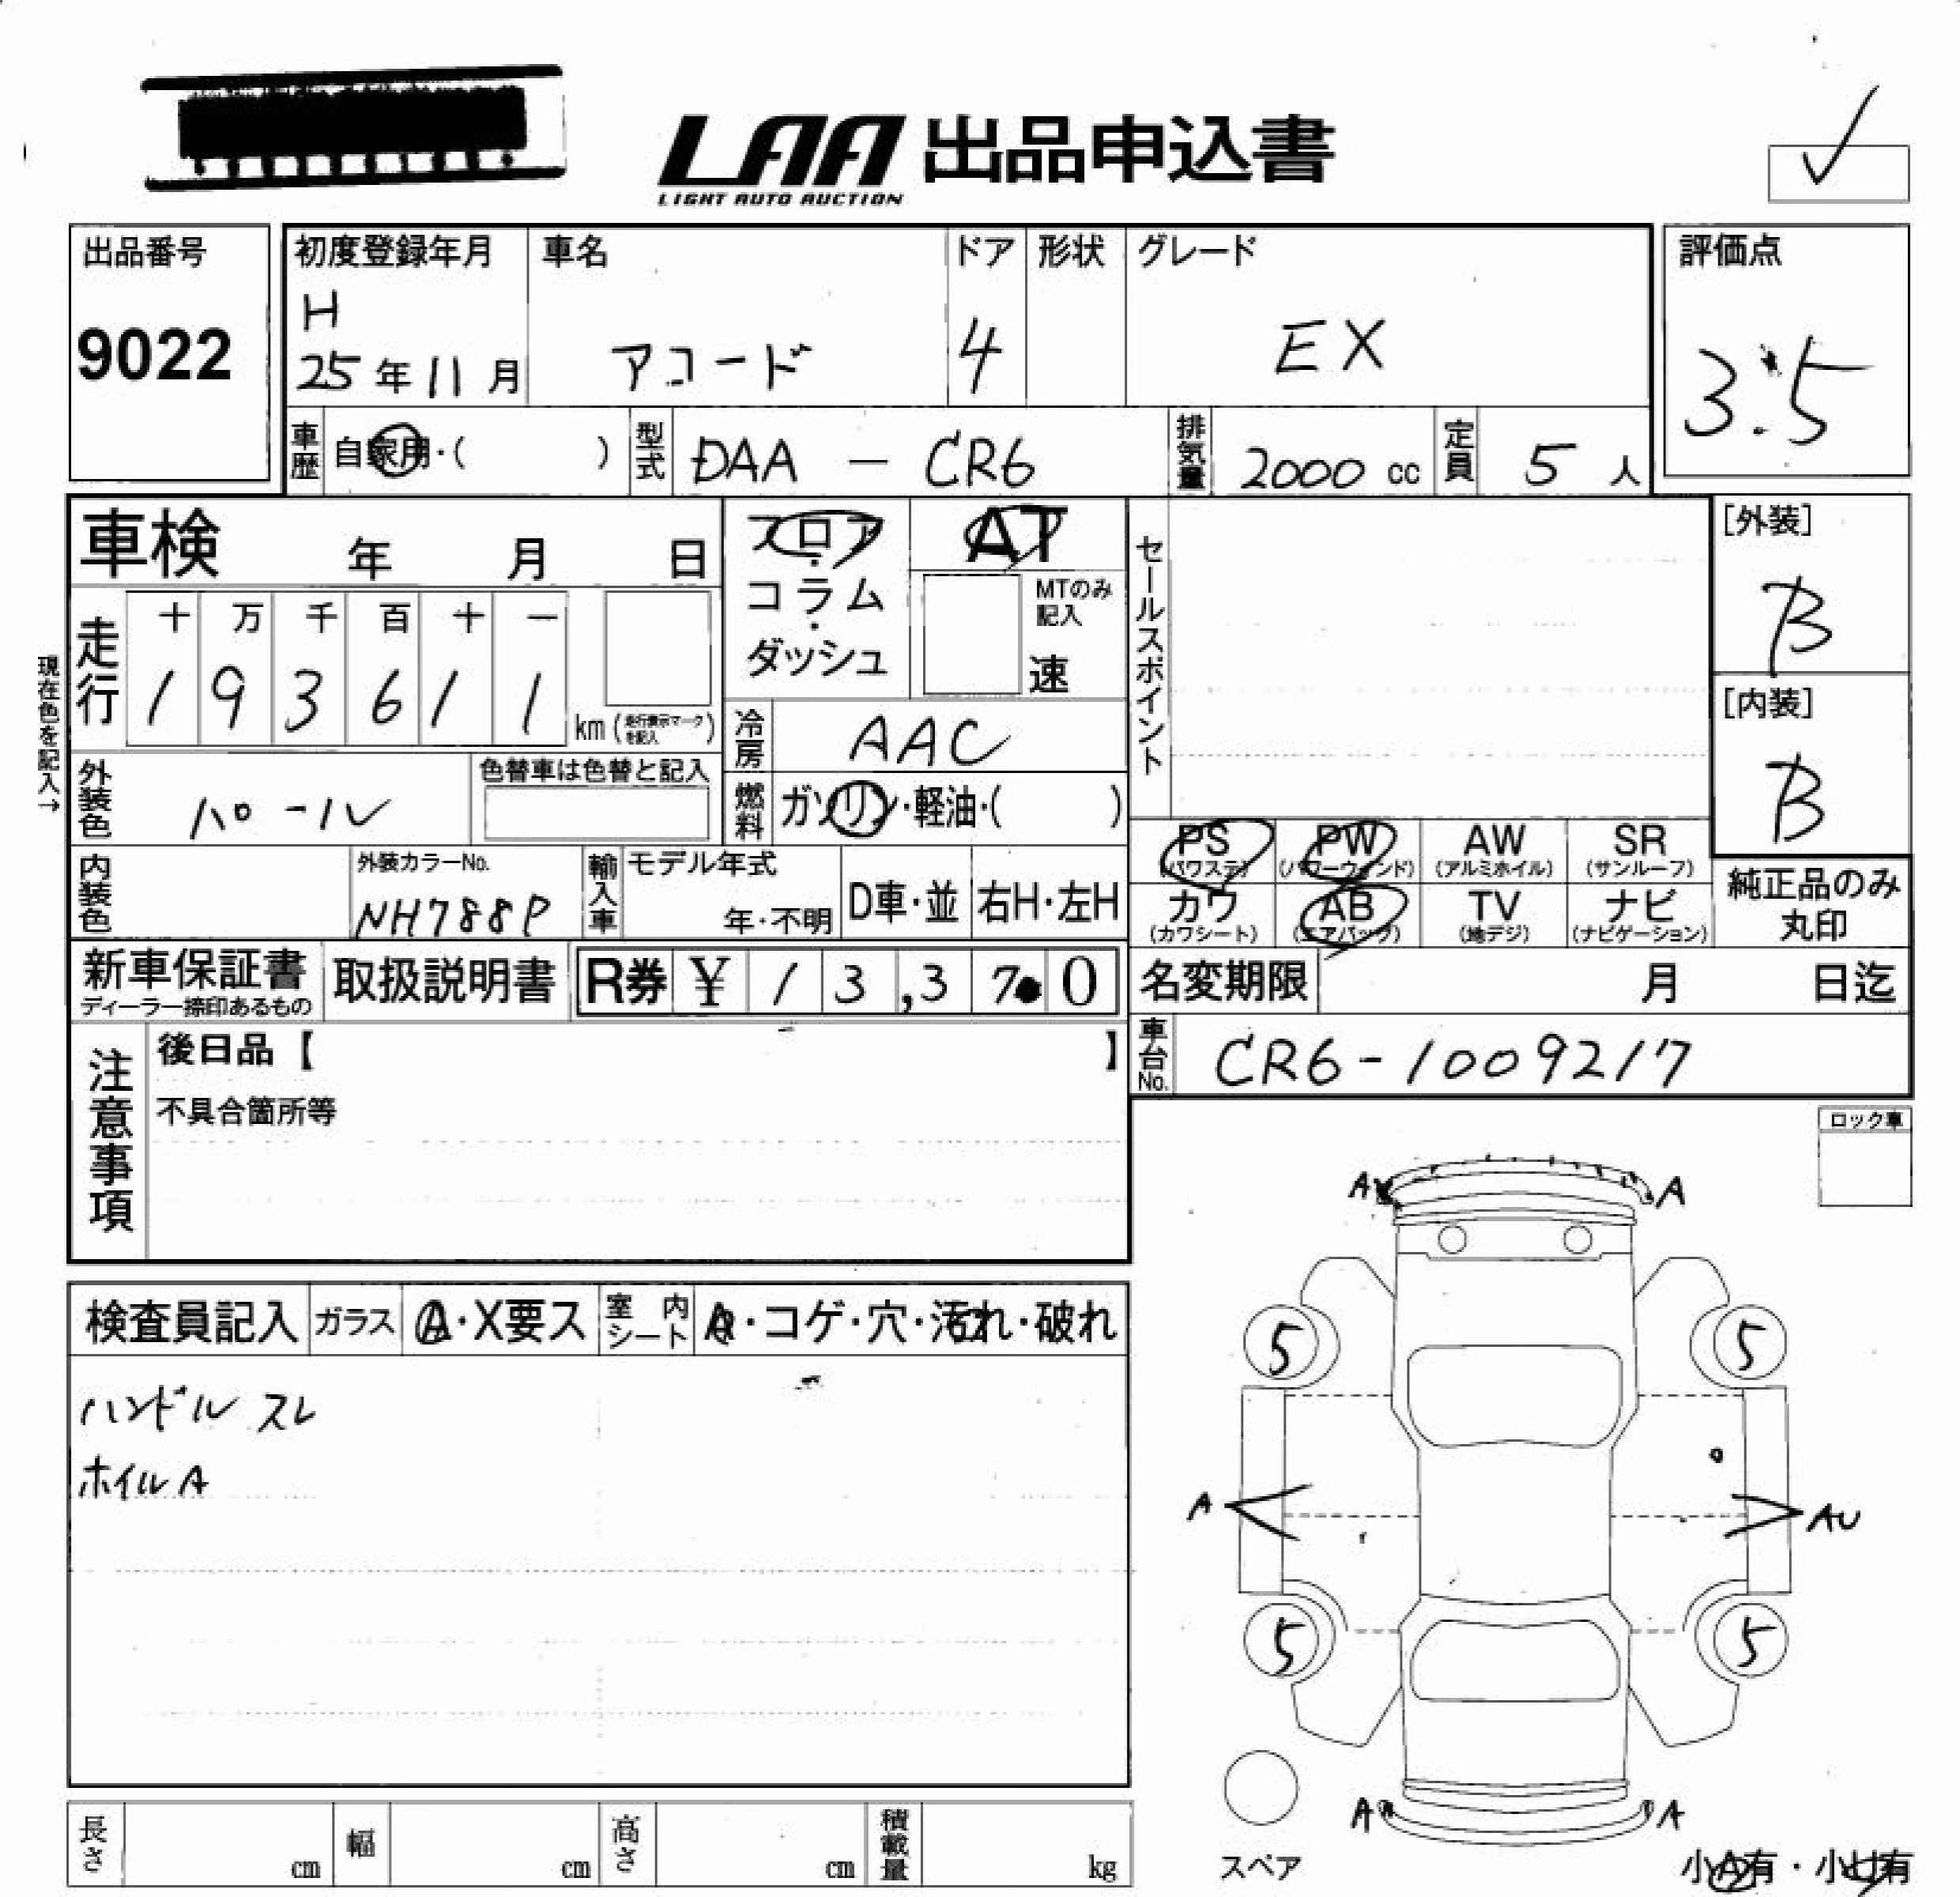 LAA 出品申込書
LIGHT AUTO AUCTION
出品番号
9022
初度登録年月
H
25年11月
車名
アコード
ドア
4
形状
グレード
EX
評価点
3.5
車歴 自家用・( )
型式 DAA - CR6
排気量 2000 cc
定員 5 人
車検 年 月 日
フロア・コラム・ダッシュ
AT
MTのみ記入
速
セールスポイント
[外装]
B
[内装]
B
現在色を記入→
走行
十 万 千 百 十 一
1 9 3 6 1 1
km (走行表示マークを記入)
冷房 AAC
外装色 パール
色替車は色替と記入
燃料 ガソリン・軽油・( )
PS (パワステ)
PW (パワーウィンド)
AW (アルミホイル)
SR (サンルーフ)
カワ (カワシート)
AB (エアバッグ)
TV (地デジ)
ナビ (ナビゲーション)
純正品のみ丸印
内装色
外装カラーNo.
NH788P
輸入車
モデル年式
年・不明
D車・並
右H・左H
新車保証書
ディーラー捺印あるもの
取扱説明書
R券 ¥ 13,370
名変期限 月 日迄
車台No. CR6-1009217
注意事項
後日品【 】
不具合箇所等
ロック車
A A
検査員記入
ガラス A・X要ス
室内シート A・コゲ・穴・汚れ・破れ
ハンドル スレ
ホイル A
5 5
A AU
5 5
A A
スペア
小A有・小U有
長さ cm
幅 cm
高さ cm
積載量 kg